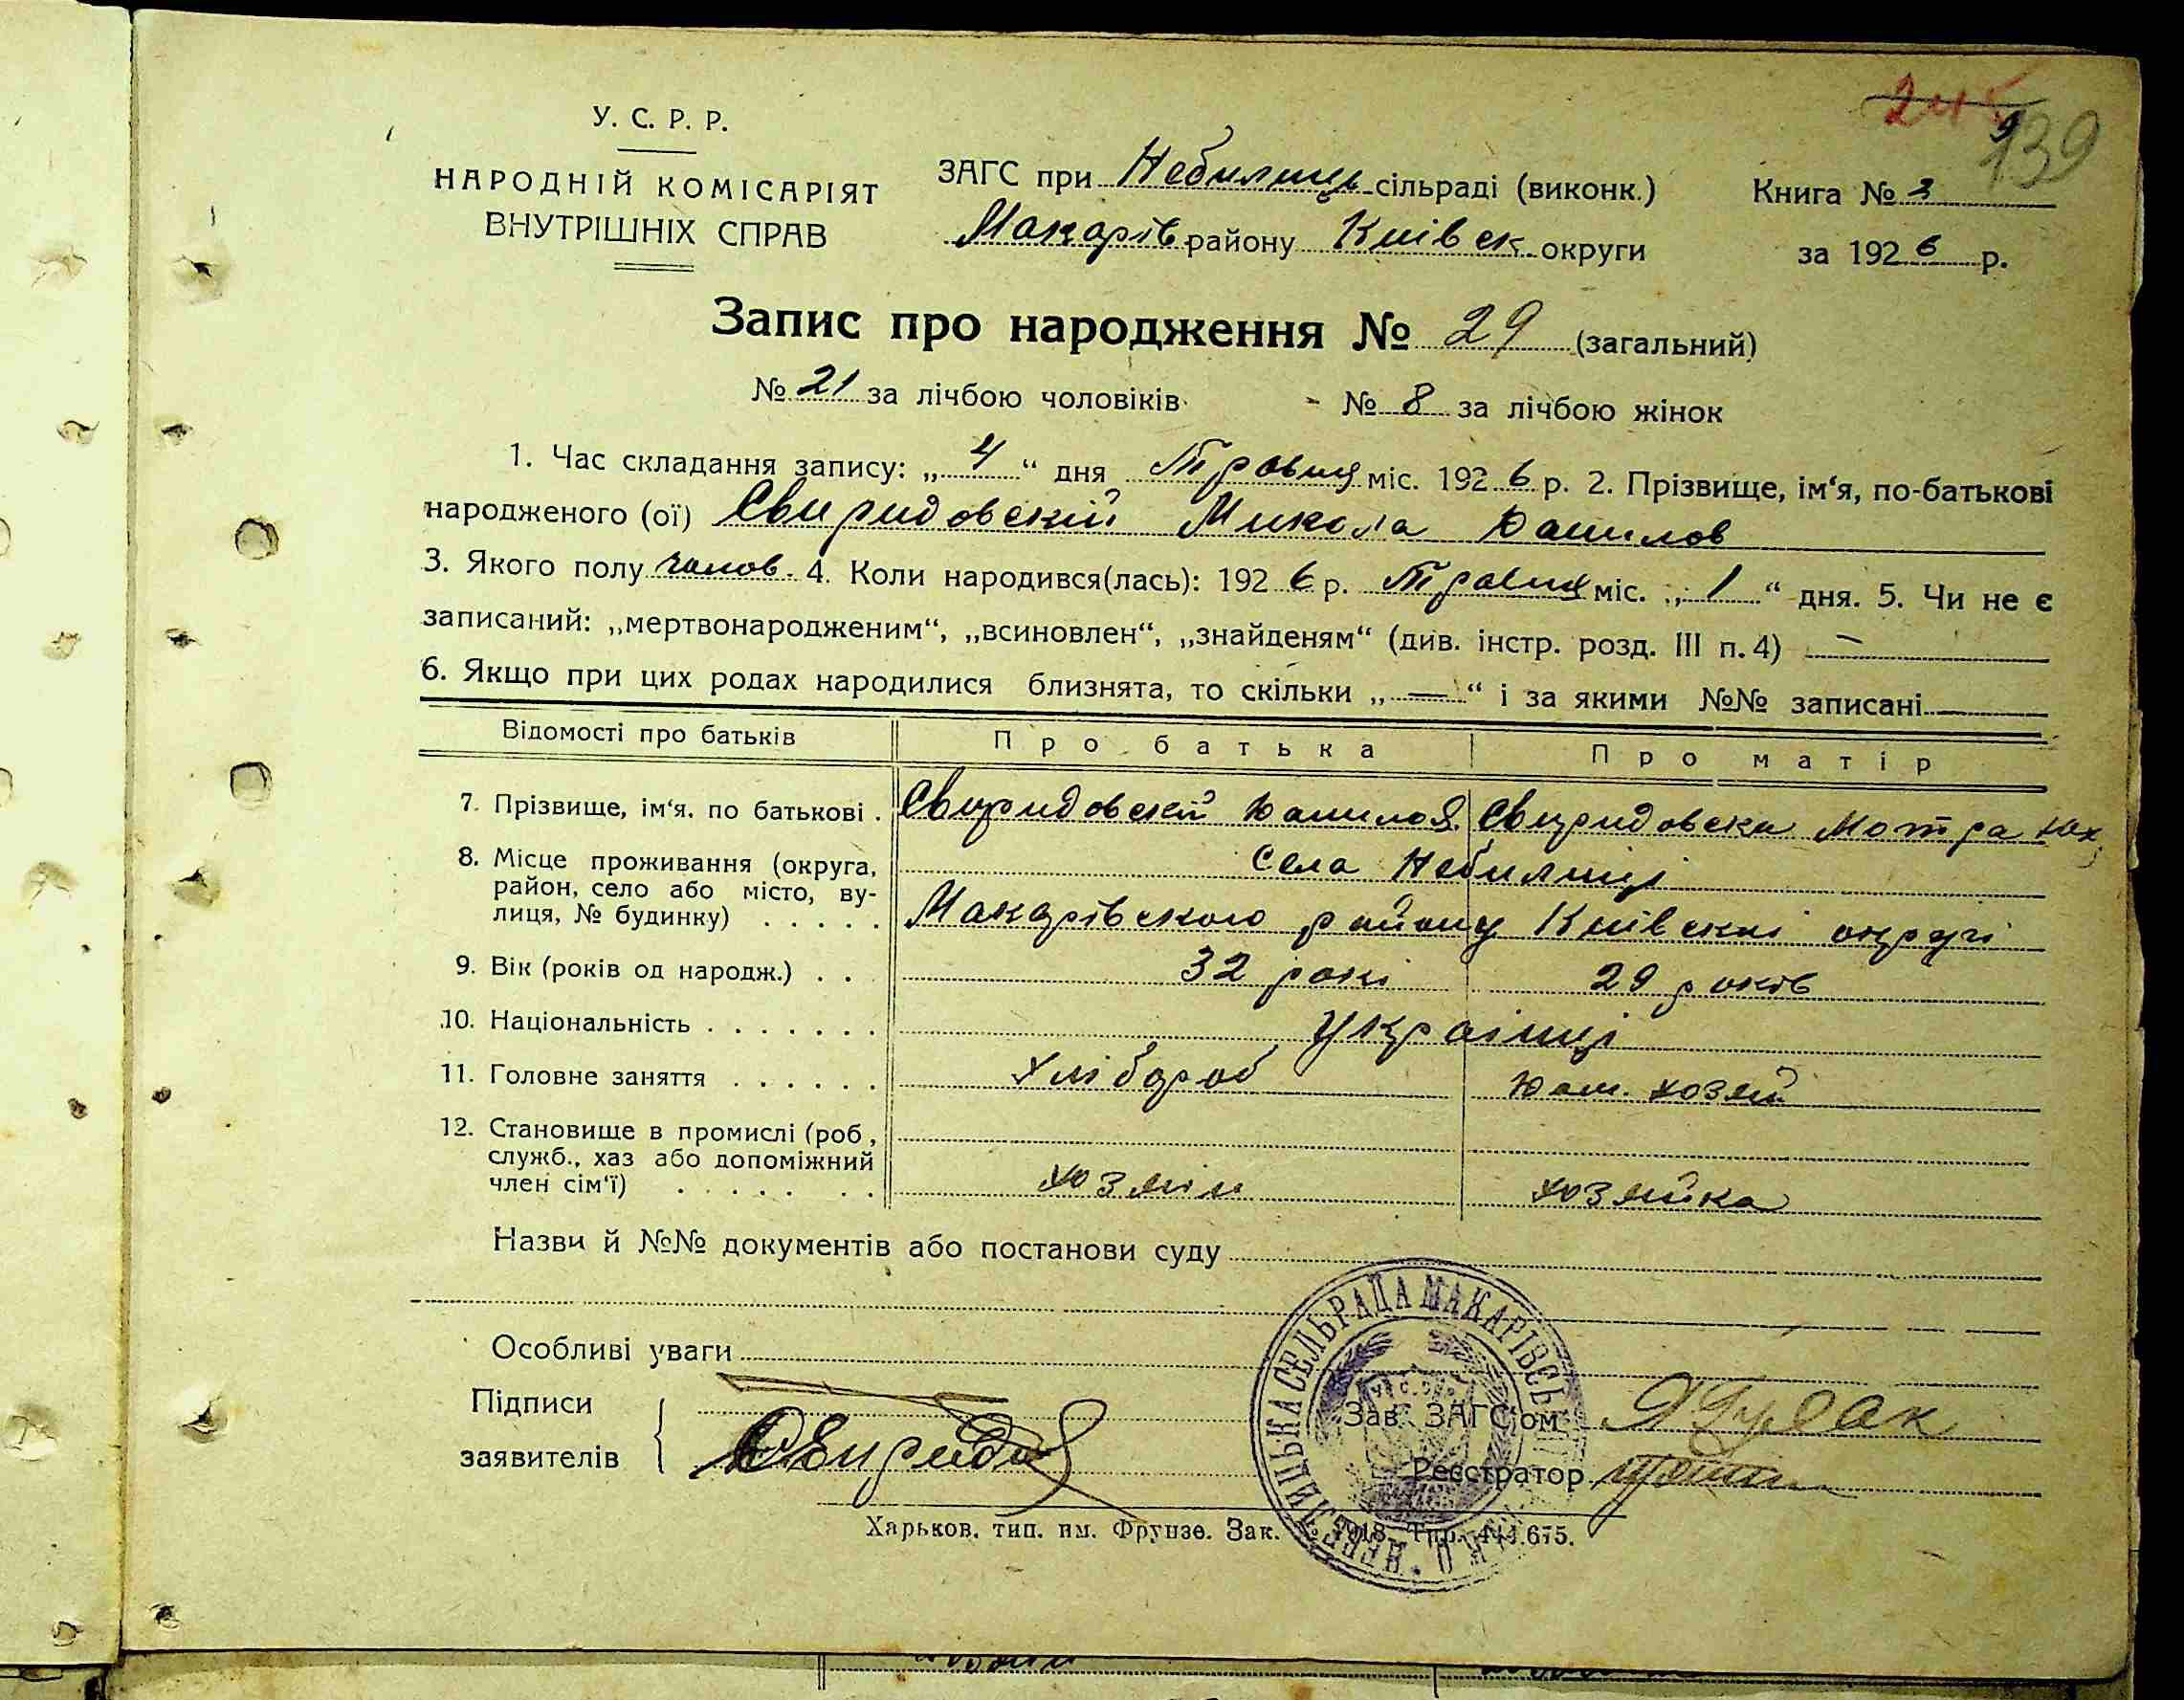 139
У. С. Р. Р.
НАРОДНІЙ КОМІСАРІЯТ
ВНУТРІШНІХ СПРАВ
ЗАГС при Небилиць сільраді (виконк.)
Макарів району Київск. округи
Книга № 3
за 1926 р.
Запис про народження № 29 (загальний)
№ 21 за лічбою чоловіків № 8 за лічбою жінок
1. Час складання запису: „ 4 “ дня Травня міс. 1926 р. 2. Прізвище, ім‘я, по-батькові
народженого (ої) Свиридовский Микола Данилов
3. Якого полу чолов. 4. Коли народився(лась): 1926 р. Травня міс. „ 1 “ дня. 5. Чи не є
записаний: „мертвонародженим“, „всиновлен“, „знайденям“ (див. інстр. розд. III п. 4) —
6. Якщо при цих родах народилися близнята, то скільки „ — “ і за якими №№ записані —
Відомості про батьків Про батька Про матір
7. Прізвище, ім‘я. по батькові . Свиридовскій Данило Свиридовска Мотра
8. Місце проживання (округа, Села Небилиці
район, село або місто, ву-
лиця, № будинку) . . . . . Макарівского району Київскі округі
9. Вік (років од народж.) . . 32 рокі 29 років
10. Національність . . . . . . . Українці
11. Головне заняття . . . . . . хлібороб Дом. хозяй
12. Становище в промислі (роб,
служб., хаз або допоміжний
член сім‘ї) . . . . . . хозяін хозяйка
Назви й №№ документів або постанови суду
Особливі уваги
Підписи
заявителів
Зав. ЗАГС‘ом
Реєстратор
НЕБЕЛИЦЬКА СЕЛЬРАДА МАКАРІВСЬК
Харьков. тип. им. Фрунзе. Зак.